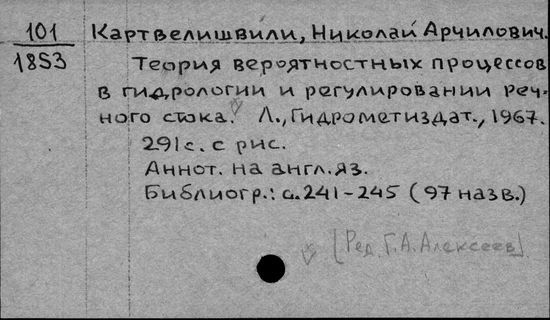 101 Картвелишвили, Николай Арчилович.
1853 Теория вероятностных процессов
в гидрологии и регулировании реч-
ного стока. Л., Гидрометиздат., 1967.
291 с. с рис.
Аннот. на англ. яз.
Библиогр.: с. 241-245 (97 назв.)
[Ред. Г. А. Алексеев].